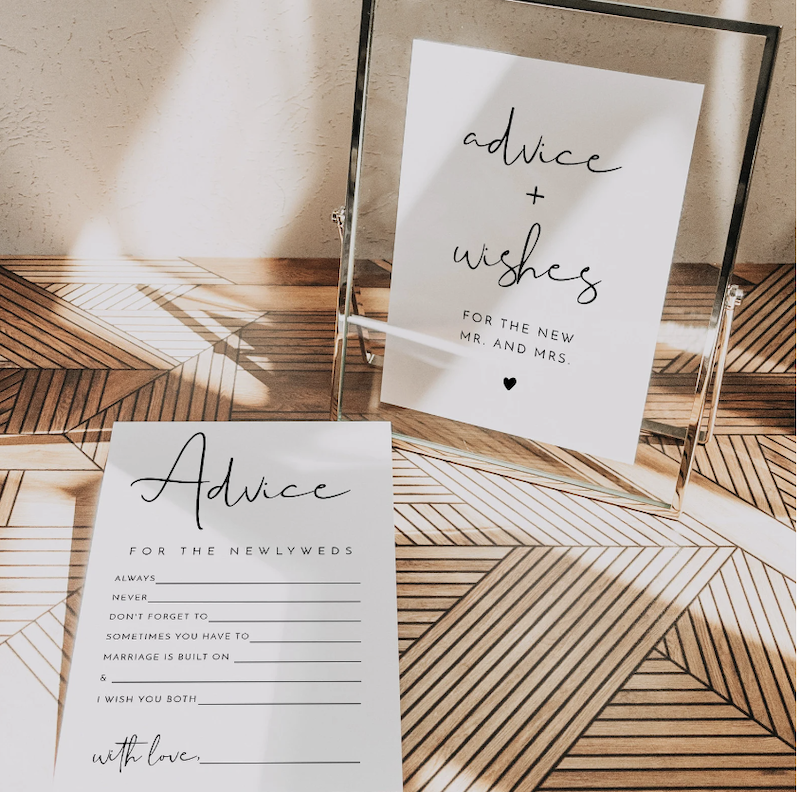 advice
+
wishes
FOR THE NEW
MR. AND MRS.
Advice
FOR THE NEWLYWEDS
ALWAYS
NEVER
DON'T FORGET TO
SOMETIMES YOU HAVE TO
MARRIAGE IS BUILT ON
&
I WISH YOU BOTH
with love,